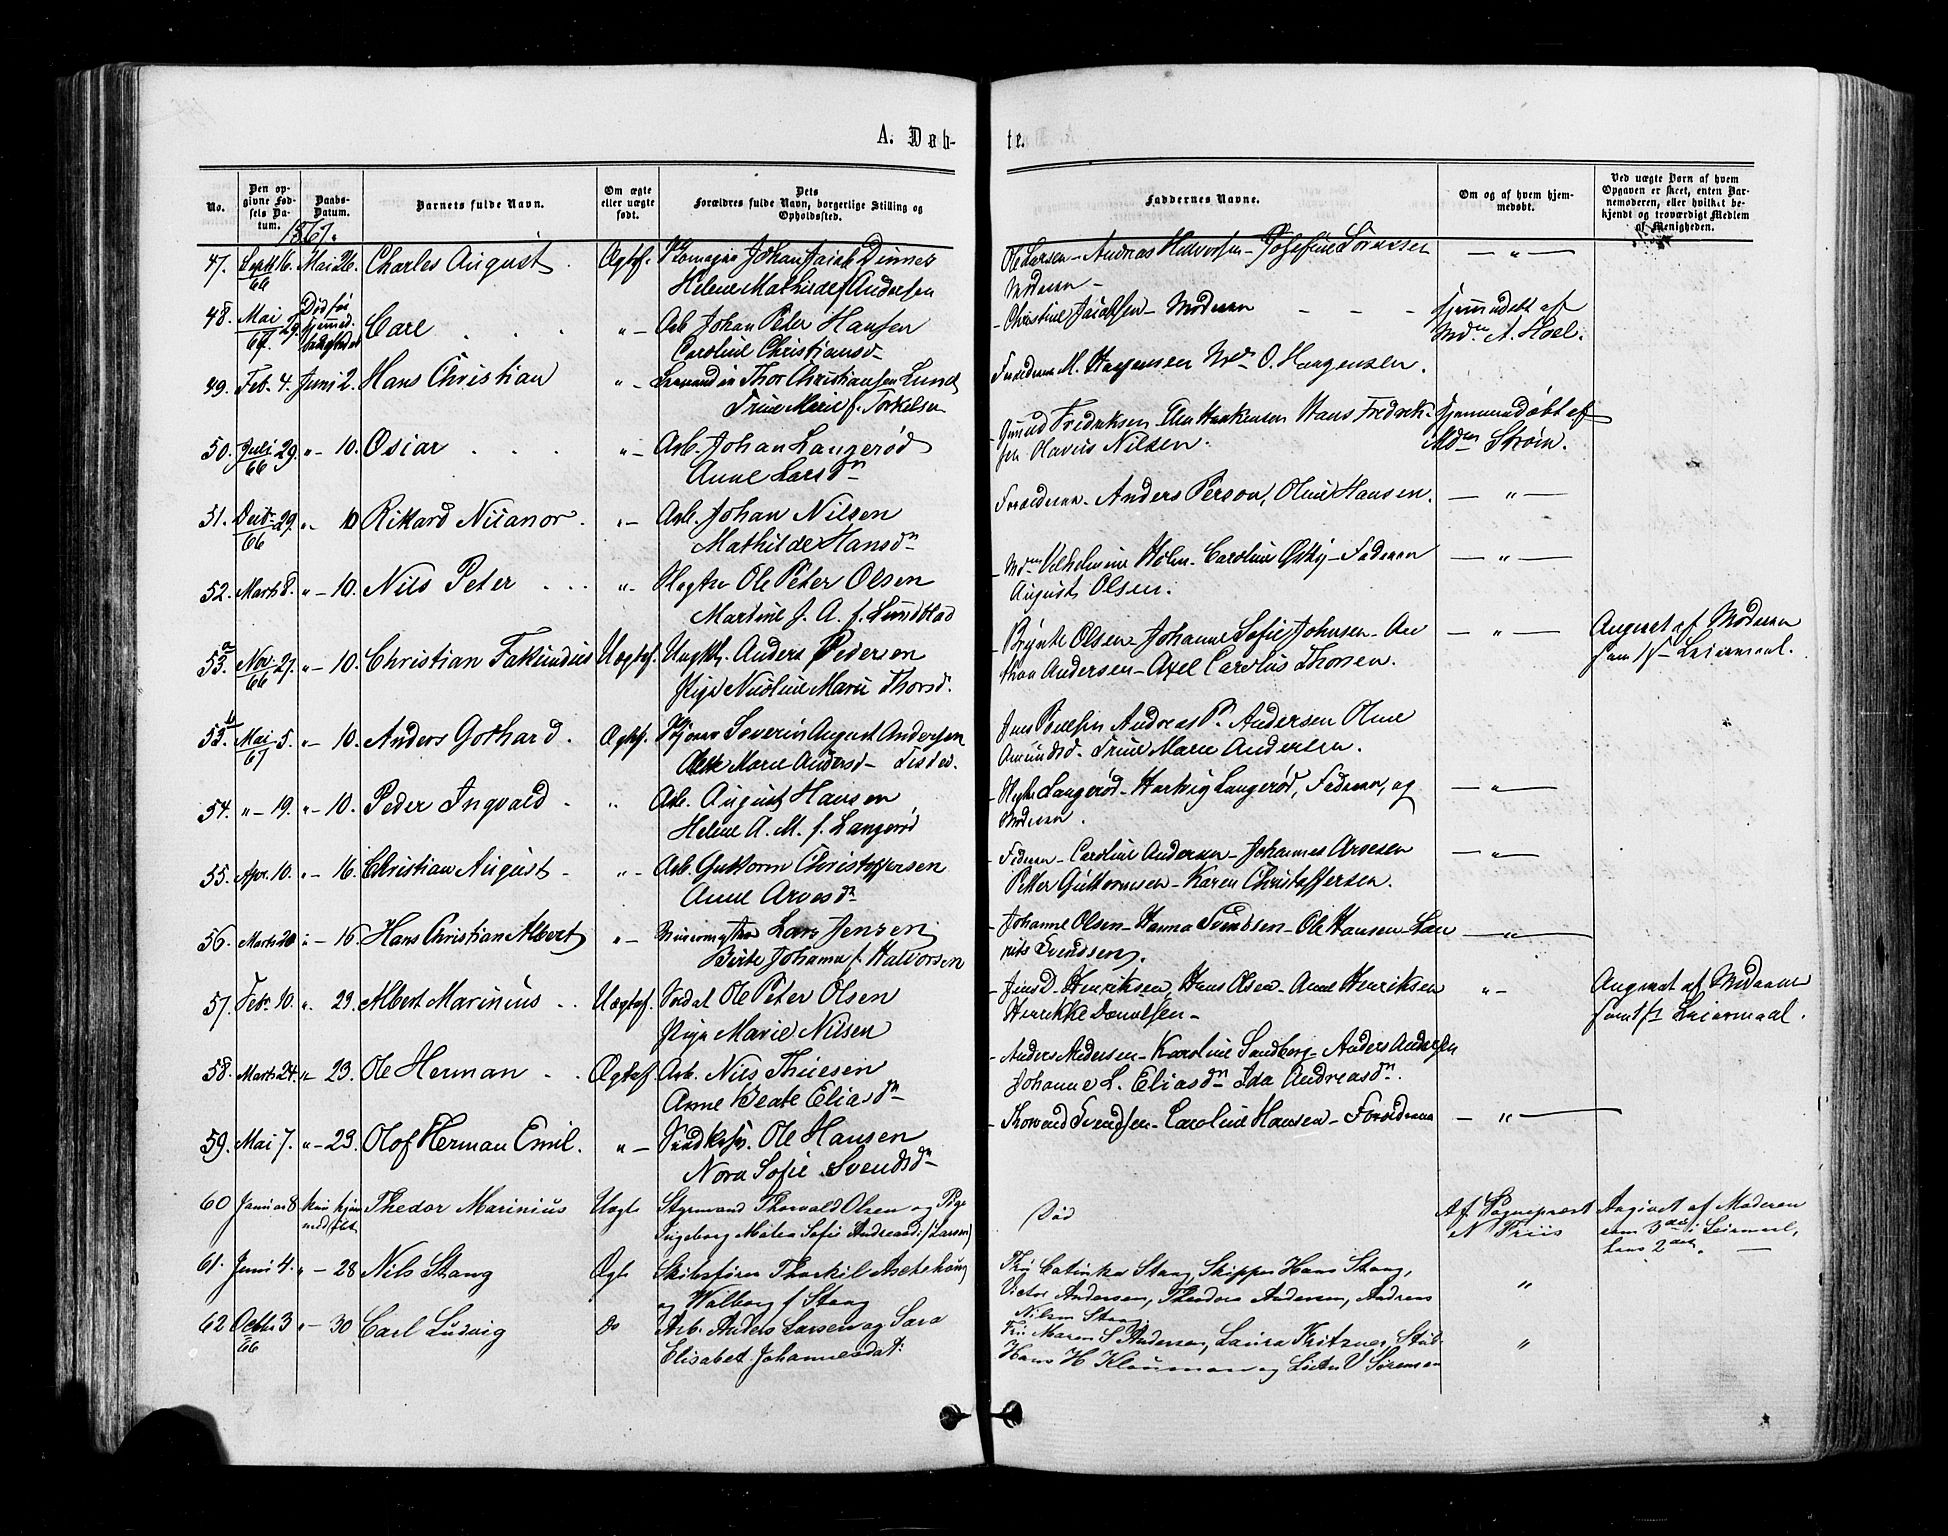 A. Døb-
te.
No.
Den opgivne Fødsels Datum.
Daabs-Datum.
Barnets fulde Navn.
Om ægte eller uægte født.
Dets Forældres fulde Navn, borgerlige Stilling og Opholdssted.
Faddernes Navne.
Om og af hvem hjemmedøbt.
Ved uægte Børn af hvem Opgaven er skeet, enten Barnemoderen, eller hvilket bekjendt og troværdigt Medlem af Menigheden.
1867.
47. Septb 16. Mai 26. Charles August Ægtef. Johan Jacob Dinnes Ole Larsen - Andreas Halvorsen - Josefine Sørensen - " -
66 Helene Mathilde f. Andersen Moderen -
48. Mai 29. Død før Carl " - Arb. Johan Peter Hansen Christine Jacobsen - Moderen - - - Hjemmedøbt af
67. Caroline Christiansdn Mdm A. Hoel.
49. Feb. 4. Juni 2. Hans Christian " - Thor Christiansen Lund Forældrene M. Mdm O. Haagensen.
Trine Marie f. Torkelsen
50. Juli 29. " - 10. Oscar " - Arb. Johan Langerød Gunild Fredriksen Hans Fredrik- Hjemmedøbt af
66 Anne Larsdn sen Olavus Nilsen. Mdm Strøm.
51. Decb. 29. " - 10 Rikard Nicanor. " - Arb. Johan Nilsen Forældrene - Anders Person, Oline Hansen. - " -
66 Mathilde Hansdn
52. Marts 8. " - 10. Nils Peter " - Ole Peter Olsen Mdm Vilhelmine Holm - Caroline Østby - Faderen - " -
Martine J. A. f. Lundblad August Olsen.
53a Nov. 27. " - 10. Christian Fakundus Uægtef. Ungk. Anders Pedersen Olsen - Johanne Sofie Johnsen - An - " - Angivet af Moderen
66 Pige Nicoline Marie Thorsd. thon Andersen - Axel Carolus Thorsen. som 1ste Leiermaal.
53b Mai 5. " - 10. Anders Gothard. Ægtef. Severin August Andersen Andreas P. Andersen Oline
67 Marie Andersdn Tisted. Amundsd - Trine Marie Andersen.
54. " - 19. " - 10. Peder Ingvald. " Arb. August Hansen Langerød - Hartvig Langerød, Faderen, og - " -
Helene A. M. f. Langerød Moderen.
55. Apr. 10. " - 16. Christian August - " - Arb. Guttorm Christoffersen Faderen - Caroline Andersen - Johannes Arvesen - " -
Anne Arvesdn Petter Guttormsen - Karen Christoffersen.
56. Marts 20 " - 16. Hans Christian Albert " - Lars Jensen Johanne Olsen - Hanna Svendsen - Ole Hansen - Lau - " -
Birte Johanne f. Halvorsen rits Svendsen.
57. Febr. 10. " - 23. Albert Marinius Uægtef. Soldat Ole Peter Olsen Henriksen, Hans Olsen - Anne Henriksen " - Angivet af Moderen
Pige Marie Nilsen Henrikke Danielsen - som 1ste Leiermaal.
58. Marts 24. " - 23. Ole Herman Ægtef. Arb. Nils Thuesen Anders Andersen - Karoline Sandberg - Anders Andersen
Anne Beate Eliasdn Johanne L. Eliasdn Ida Andreasdn.
59. Mai 7. " - 23. Olof Herman Emil. " - Ole Hansen Thorvald Svendsen - Caroline Hansen - Forældrene - " -
Nora Sofie Svendsdn
60 Januar 8 kun hjem Thedor Marinius Uægte Styrmand Thorvald Olsen og Pige Død Af Sognepræst Angivet af Moderen
medøbt Ingeborg Matea Sofie Andreasd: (Larsen) N Friis som 3die Leiermaal,
hans 2det.
61. Juni 4. " - 28 Nils Stang Ægte Skibsfører Thorkil Aschehoug Frø. Catinka Stang, Skipper Hans Stang,
og Walborg f Stang Victor Andersen, Theodora Andersen, Andreas "
Nilsen Stang.
62 Octbr 3 " - 30 Carl Ludvig do Arb. Anders Larsen og Sara Fru Maren S Andersen, Laura Kritzner, Stud.
66 Elisabed. Johannesdat: Hans H Klouman og V Sørensen "